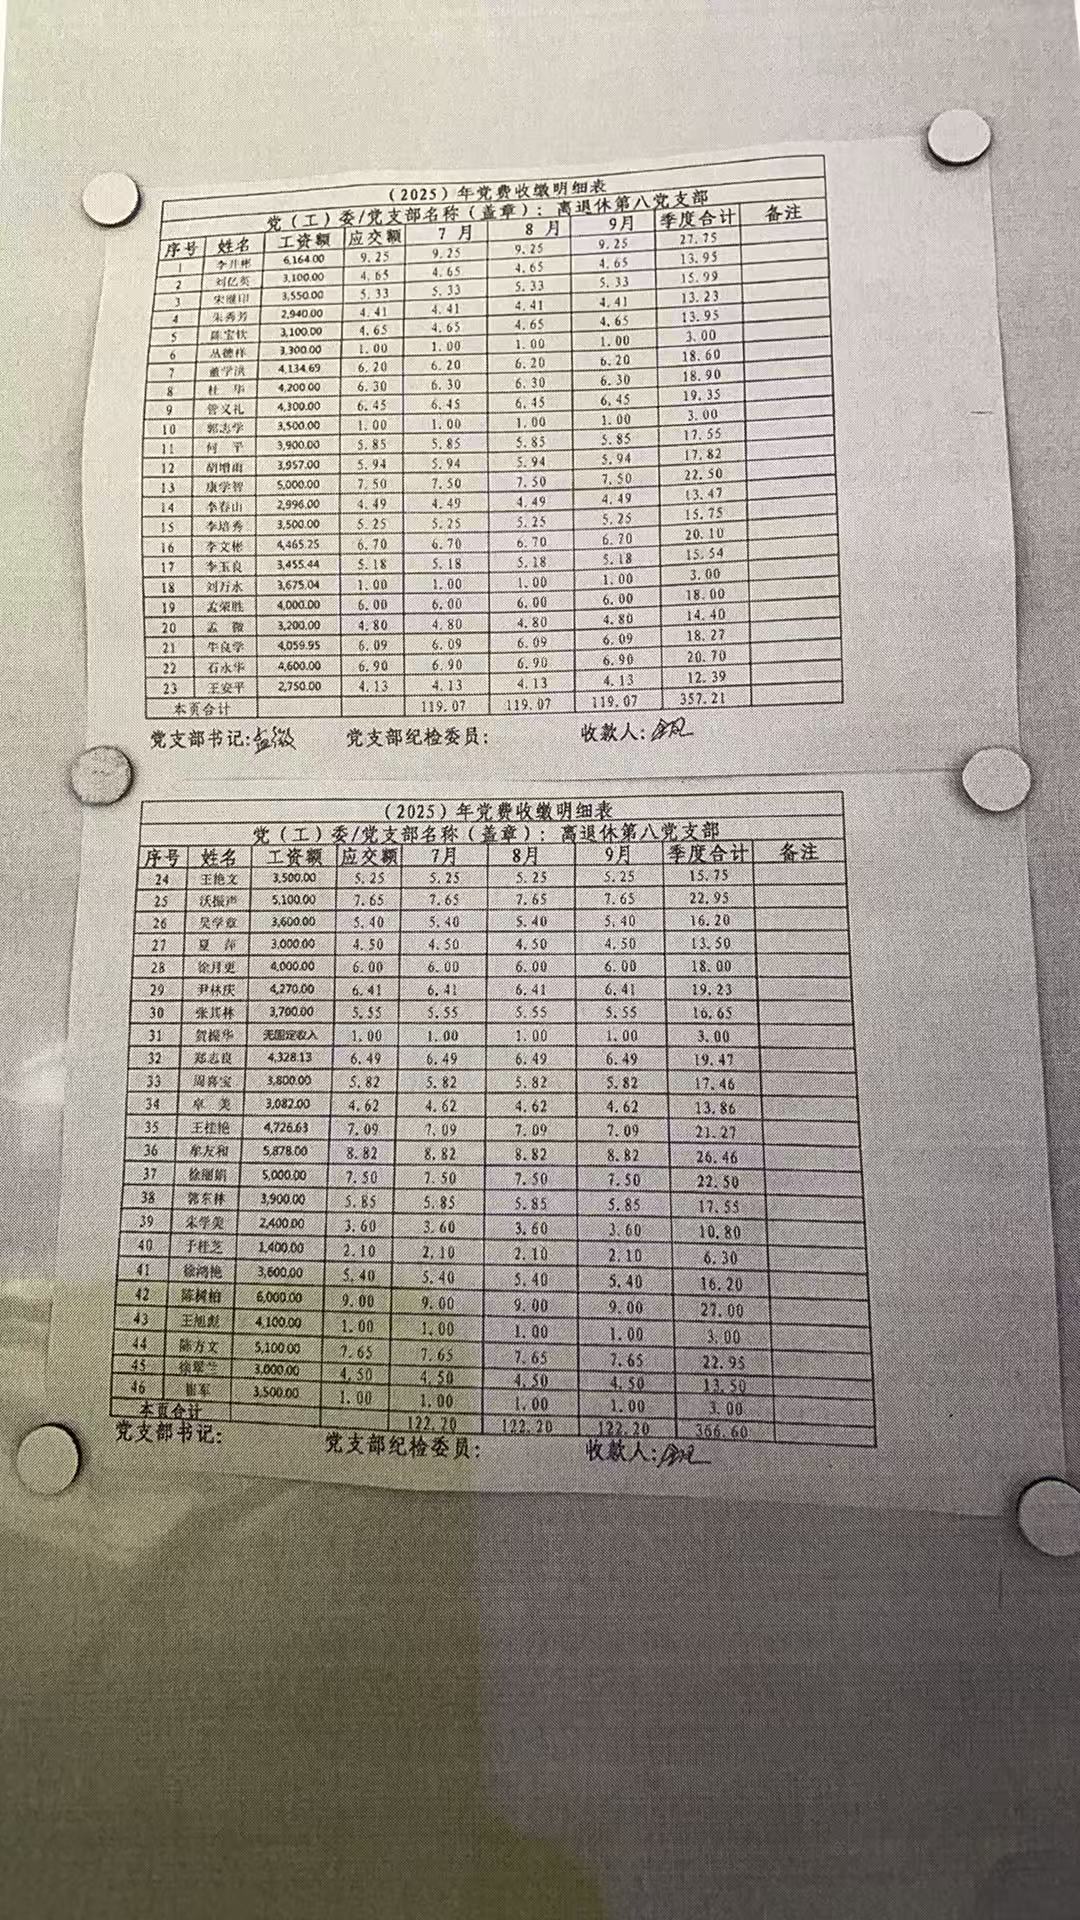 （2025）年党费收缴明细表
党（工）委/党支部名称（盖章）：离退休第八党支部
序号 姓名 工资额 应交额 7 月 8 月 9月 季度合计 备注
1 李井彬 6,164.00 9.25 9.25 9.25 9.25 27.75
2 刘亿英 3,100.00 4.65 4.65 4.65 4.65 13.95
3 3,550.00 5.33 5.33 5.33 5.33 15.99
4 朱秀芳 2,940.00 4.41 4.41 4.41 4.41 13.23
5 陈宝钦 3,100.00 4.65 4.65 4.65 4.65 13.95
6 丛德祥 3,300.00 1.00 1.00 1.00 1.00 3.00
7 董学洪 4,134.69 6.20 6.20 6.20 6.20 18.60
8 杜 华 4,200.00 6.30 6.30 6.30 6.30 18.90
9 管义礼 4,300.00 6.45 6.45 6.45 6.45 19.35
10 郭志学 3,500.00 1.00 1.00 1.00 1.00 3.00
11 何 平 3,900.00 5.85 5.85 5.85 5.85 17.55
12 胡增雨 3,957.00 5.94 5.94 5.94 5.94 17.82
13 康学智 5,000.00 7.50 7.50 7.50 7.50 22.50
14 李春山 2,996.00 4.49 4.49 4.49 4.49 13.47
15 李培秀 3,500.00 5.25 5.25 5.25 5.25 15.75
16 李文彬 4,465.25 6.70 6.70 6.70 6.70 20.10
17 李玉良 3,455.44 5.18 5.18 5.18 5.18 15.54
18 刘万永 3,675.04 1.00 1.00 1.00 1.00 3.00
19 孟荣胜 4,000.00 6.00 6.00 6.00 6.00 18.00
20 孟 微 3,200.00 4.80 4.80 4.80 4.80 14.40
21 牛良学 4,059.95 6.09 6.09 6.09 6.09 18.27
22 石永华 4,600.00 6.90 6.90 6.90 6.90 20.70
23 王安平 2,750.00 4.13 4.13 4.13 4.13 12.39
本页合计 119.07 119.07 119.07 357.21
党支部书记:孟微 党支部纪检委员: 收款人:
（2025）年党费收缴明细表
党（工）委/党支部名称（盖章）：离退休第八党支部
序号 姓名 工资额 应交额 7月 8月 9月 季度合计 备注
24 王艳文 3,500.00 5.25 5.25 5.25 5.25 15.75
25 沃振声 5,100.00 7.65 7.65 7.65 7.65 22.95
26 吴学章 3,600.00 5.40 5.40 5.40 5.40 16.20
27 夏 萍 3,000.00 4.50 4.50 4.50 4.50 13.50
28 徐月更 4,000.00 6.00 6.00 6.00 6.00 18.00
29 尹林庆 4,270.00 6.41 6.41 6.41 6.41 19.23
30 张其林 3,700.00 5.55 5.55 5.55 5.55 16.65
31 贺振华 无固定收入 1.00 1.00 1.00 1.00 3.00
32 郑志良 4,328.13 6.49 6.49 6.49 6.49 19.47
33 周喜宝 3,800.00 5.82 5.82 5.82 5.82 17.46
34 卓 美 3,082.00 4.62 4.62 4.62 4.62 13.86
35 王桂艳 4,726.63 7.09 7.09 7.09 7.09 21.27
36 牟友和 5,878.00 8.82 8.82 8.82 8.82 26.46
37 徐丽娟 5,000.00 7.50 7.50 7.50 7.50 22.50
38 郭东林 3,900.00 5.85 5.85 5.85 5.85 17.55
39 宋学美 2,400.00 3.60 3.60 3.60 3.60 10.80
40 于桂芝 1,400.00 2.10 2.10 2.10 2.10 6.30
41 徐鸿艳 3,600.00 5.40 5.40 5.40 5.40 16.20
42 陈树柏 6,000.00 9.00 9.00 9.00 9.00 27.00
43 王旭彪 4,100.00 1.00 1.00 1.00 1.00 3.00
44 陈方文 5,100.00 7.65 7.65 7.65 7.65 22.95
45 徐翠兰 3,000.00 4.50 4.50 4.50 4.50 13.50
46 崔军 3,500.00 1.00 1.00 1.00 1.00 3.00
本页合计 122.20 122.20 122.20 366.60
党支部书记: 党支部纪检委员: 收款人: